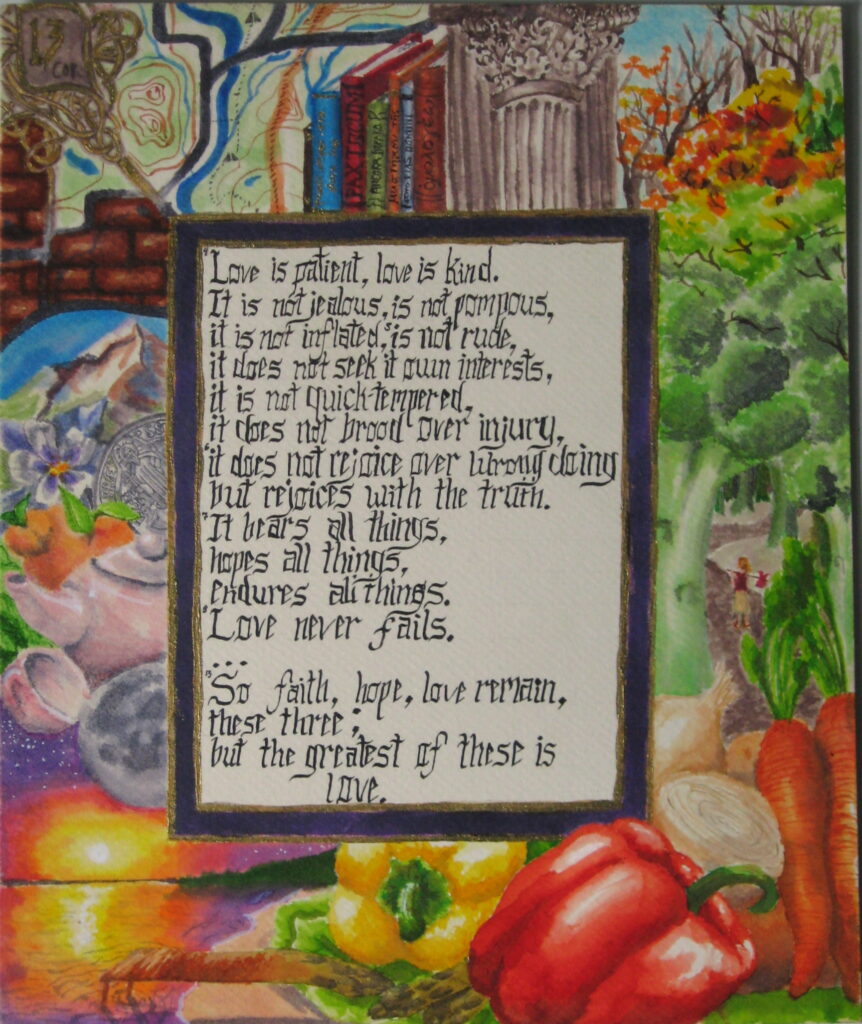 13
COR
PAX
"Love is patient, love is kind.
It is not jealous, is not pompous,
it is not inflated, is not rude,
it does not seek it own interests,
it is not quick-tempered,
it does not brood over injury,
it does not rejoice over wrong doing
but rejoices with the truth.
It bears all things,
hopes all things,
endures all things.
Love never fails.
...
So faith, hope, love remain,
these three;
but the greatest of these is
love.